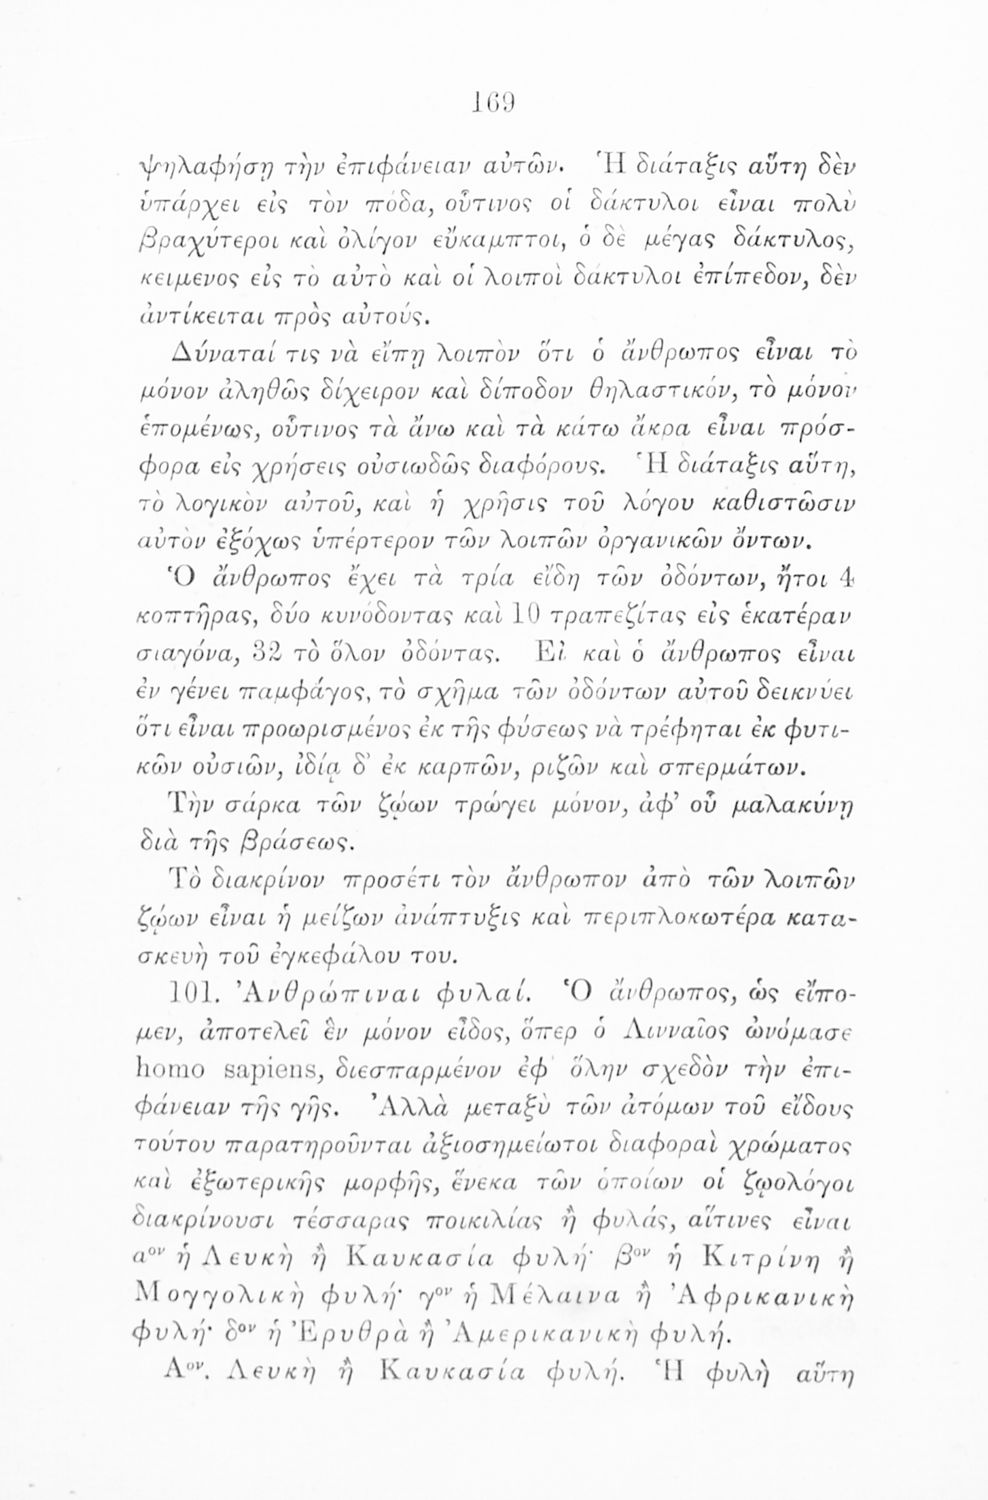 169
ψηλαφήσῃ τὴν ἐπιφάνειαν αὐτῶν. Ἡ διάταξις αὕτη δὲν
ὑπάρχει εἰς τὸν πόδα, οὗτινος οἱ δάκτυλοι εἶναι πολὺ
βραχύτεροι καὶ ὀλίγον εὔκαμπτοι, ὁ δὲ μέγας δάκτυλος,
κειμενος εἰς τὸ αὐτὸ καὶ οἱ λοιποὶ δάκτυλοι ἐπίπεδον, δὲν
ἀντίκειται πρὸς αὐτούς.
Δύναταί τις νὰ εἴπῃ λοιπὸν ὅτι ὁ ἄνθρωπος εἶναι τὸ
μόνον ἀληθῶς δίχειρον καὶ δίποδον θηλαστικόν, τὸ μόνον
ἑπομένως, οὗτινος τὰ ἄνω καὶ τὰ κάτω ἄκρα εἶναι πρόσ-
φορα εἰς χρήσεις οὐσιωδῶς διαφόρους. Ἡ διάταξις αὕτη,
τὸ λογικὸν αὐτοῦ, καὶ ἡ χρῆσις τοῦ λόγου καθιστῶσιν
αὐτὸν ἐξόχως ὑπέρτερον τῶν λοιπῶν ὀργανικῶν ὄντων.
Ὁ ἄνθρωπος ἔχει τὰ τρία εἴδη τῶν ὀδόντων, ἤτοι 4
κοπτῆρας, δύο κυνόδοντας καὶ 10 τραπεζίτας εἰς ἑκατέραν
σιαγόνα, 32 τὸ ὅλον ὀδόντας. Εἰ καὶ ὁ ἄνθρωπος εἶναι
ἐν γένει παμφάγος, τὸ σχῆμα τῶν ὀδόντων αὐτοῦ δεικνύει
ὅτι εἶναι προωρισμένος ἐκ τῆς φύσεως νὰ τρέφηται ἐκ φυτι-
κῶν οὐσιῶν, ἰδίᾳ δ' ἐκ καρπῶν, ριζῶν καὶ σπερμάτων.
Τὴν σάρκα τῶν ζῴων τρώγει μόνον, ἀφ' οὗ μαλακύνῃ
διὰ τῆς βράσεως.
Τὸ διακρίνον προσέτι τὸν ἄνθρωπον ἀπὸ τῶν λοιπῶν
ζῴων εἶναι ἡ μείζων ἀνάπτυξις καὶ περιπλοκωτέρα κατα-
σκευὴ τοῦ ἐγκεφάλου του.
101. Ἀνθρώπιναι φυλαί. Ὁ ἄνθρωπος, ὡς εἴπο-
μεν, ἀποτελεῖ ἓν μόνον εἶδος, ὅπερ ὁ Λινναῖος ὠνόμασε
homo sapiens, διεσπαρμένον ἐφ' ὅλην σχεδὸν τὴν ἐπι-
φάνειαν τῆς γῆς. Ἀλλὰ μεταξὺ τῶν ἀτόμων τοῦ εἴδους
τούτου παρατηροῦνται ἀξιοσημείωτοι διαφοραὶ χρώματος
καὶ ἐξωτερικῆς μορφῆς, ἕνεκα τῶν ὁποίων οἱ ζῳολόγοι
διακρίνουσι τέσσαρας ποικιλίας ἢ φυλάς, αἵτινες εἶναι
αον ἡ Λευκὴ ἢ Καυκασία φυλή· βον ἡ Κιτρίνη ἢ
Μογγολικὴ φυλή· γον ἡ Μέλαινα ἢ Ἀφρικανικὴ
φυλή· δον ἡ Ἐρυθρὰ ἢ Ἀμερικανικὴ φυλή.
Αον. Λευκὴ ἢ Καυκασία φυλή. Ἡ φυλὴ αὕτη